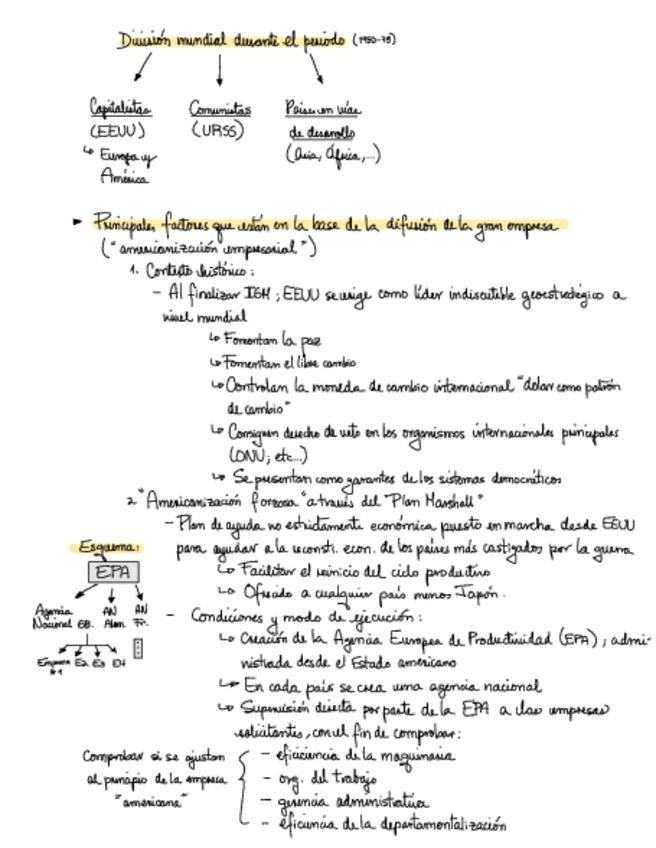 División mundial durante el periodo (1950-75)
Capitalistas
(EEUU)
↳ Europa y
América
Comunistas
(URSS)
Países en vías
de desarrollo
(Asia, África,...)
► Principales factores que están en la base de la difusión de la gran empresa
("americanización empresarial")
1. Contexto histórico:
- Al finalizar IIGM; EEUU se erige como líder indiscutible geoestratégico a
nivel mundial
↳ Fomentan la paz
↳ Fomentan el libre cambio
↳ Controlan la moneda de cambio internacional "dolar como patrón
de cambio"
↳ Consiguen derecho de veto en los organismos internacionales principales
(ONU, etc...)
↳ Se presentan como garantes de los sistemas democráticos
2. "Americanización forzosa" a través del "Plan Marshall"
- Plan de ayuda no estrictamente económica puesto en marcha desde EEUU
para ayudar a la reconsti. econ. de los países más castigados por la guerra
↳ Facilitar el reinicio del ciclo productivo
↳ Ofrecido a cualquier país menos Japón.
Esquema:
EPA
Agencia
Nacional BB.
AN
Alem.
AN
Fr.
Empresa
nº1
E2 E3 E4
- Condiciones y modo de ejecución:
↳ Creación de la Agencia Europea de Productividad (EPA), admi-
nistrada desde el Estado americano
↳ En cada país se crea una agencia nacional
↳ Supervisión directa por parte de la EPA a las empresas
solicitantes, con el fin de comprobar:
Comprobar si se ajustan
al principio de la empresa
"americana"
- eficiciencia de la maquinaria
- org. del trabajo
- gerencia administrativa
- eficiencia de la departamentalización